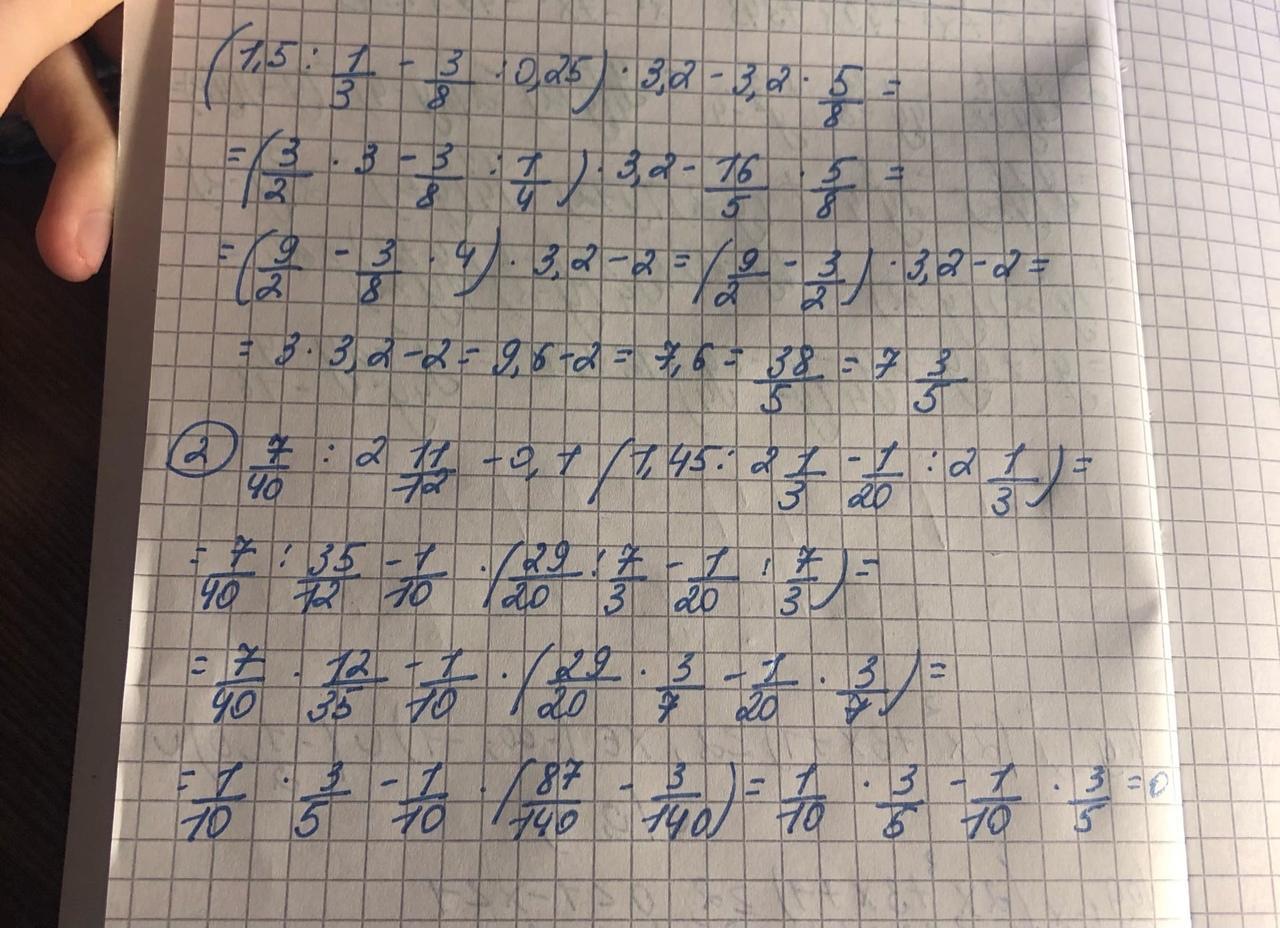 (1,5 : 1/3 - 3/8 : 0,25) · 3,2 - 3,2 · 5/8 =
= (3/2 · 3 - 3/8 : 1/4) · 3,2 - 16/5 · 5/8 =
= (9/2 - 3/8 · 4) · 3,2 - 2 = (9/2 - 3/2) · 3,2 - 2 =
= 3 · 3,2 - 2 = 9,6 - 2 = 7,6 = 38/5 = 7 3/5
2) 7/40 : 2 11/12 - 0,1 (1,45 : 2 1/3 - 1/20 : 2 1/3) =
= 7/40 : 35/12 - 1/10 · (29/20 : 7/3 - 1/20 : 7/3) =
= 7/40 · 12/35 - 1/10 · (29/20 · 3/7 - 1/20 · 3/7) =
= 1/10 · 3/5 - 1/10 · (87/140 - 3/140) = 1/10 · 3/5 - 1/10 · 3/5 = 0